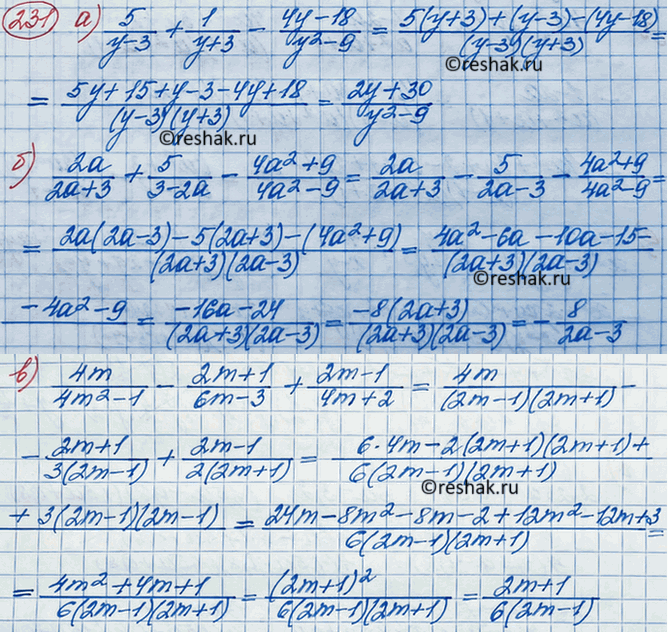 231 а) 5/(y-3) + 1/(y+3) - (4y-18)/(y²-9) = (5(y+3)+(y-3)-(4y-18))/((y-3)(y+3)) =
©reshak.ru
= (5y+15+y-3-4y+18)/((y-3)(y+3)) = (2y+30)/(y²-9)
©reshak.ru
б) 2a/(2a+3) + 5/(3-2a) - (4a²+9)/(4a²-9) = 2a/(2a+3) - 5/(2a-3) - (4a²+9)/(4a²-9) =
= (2a(2a-3)-5(2a+3)-(4a²+9))/((2a+3)(2a-3)) = (4a²-6a-10a-15-)/((2a+3)(2a-3))
©reshak.ru
-4a²-9 = (-16a-24)/((2a+3)(2a-3)) = (-8(2a+3))/((2a+3)(2a-3)) = - 8/(2a-3)
в) 4m/(4m²-1) - (2m+1)/(6m-3) + (2m-1)/(4m+2) = 4m/((2m-1)(2m+1)) -
- (2m+1)/(3(2m-1)) + (2m-1)/(2(2m+1)) = (6·4m-2(2m+1)(2m+1)+)/(6(2m-1)(2m+1))
©reshak.ru
+3(2m-1)(2m-1) = (24m-8m²-8m-2+12m²-12m+3)/(6(2m-1)(2m+1)) =
= (4m²+4m+1)/(6(2m-1)(2m+1)) = (2m+1)²/(6(2m-1)(2m+1)) = (2m+1)/(6(2m-1))